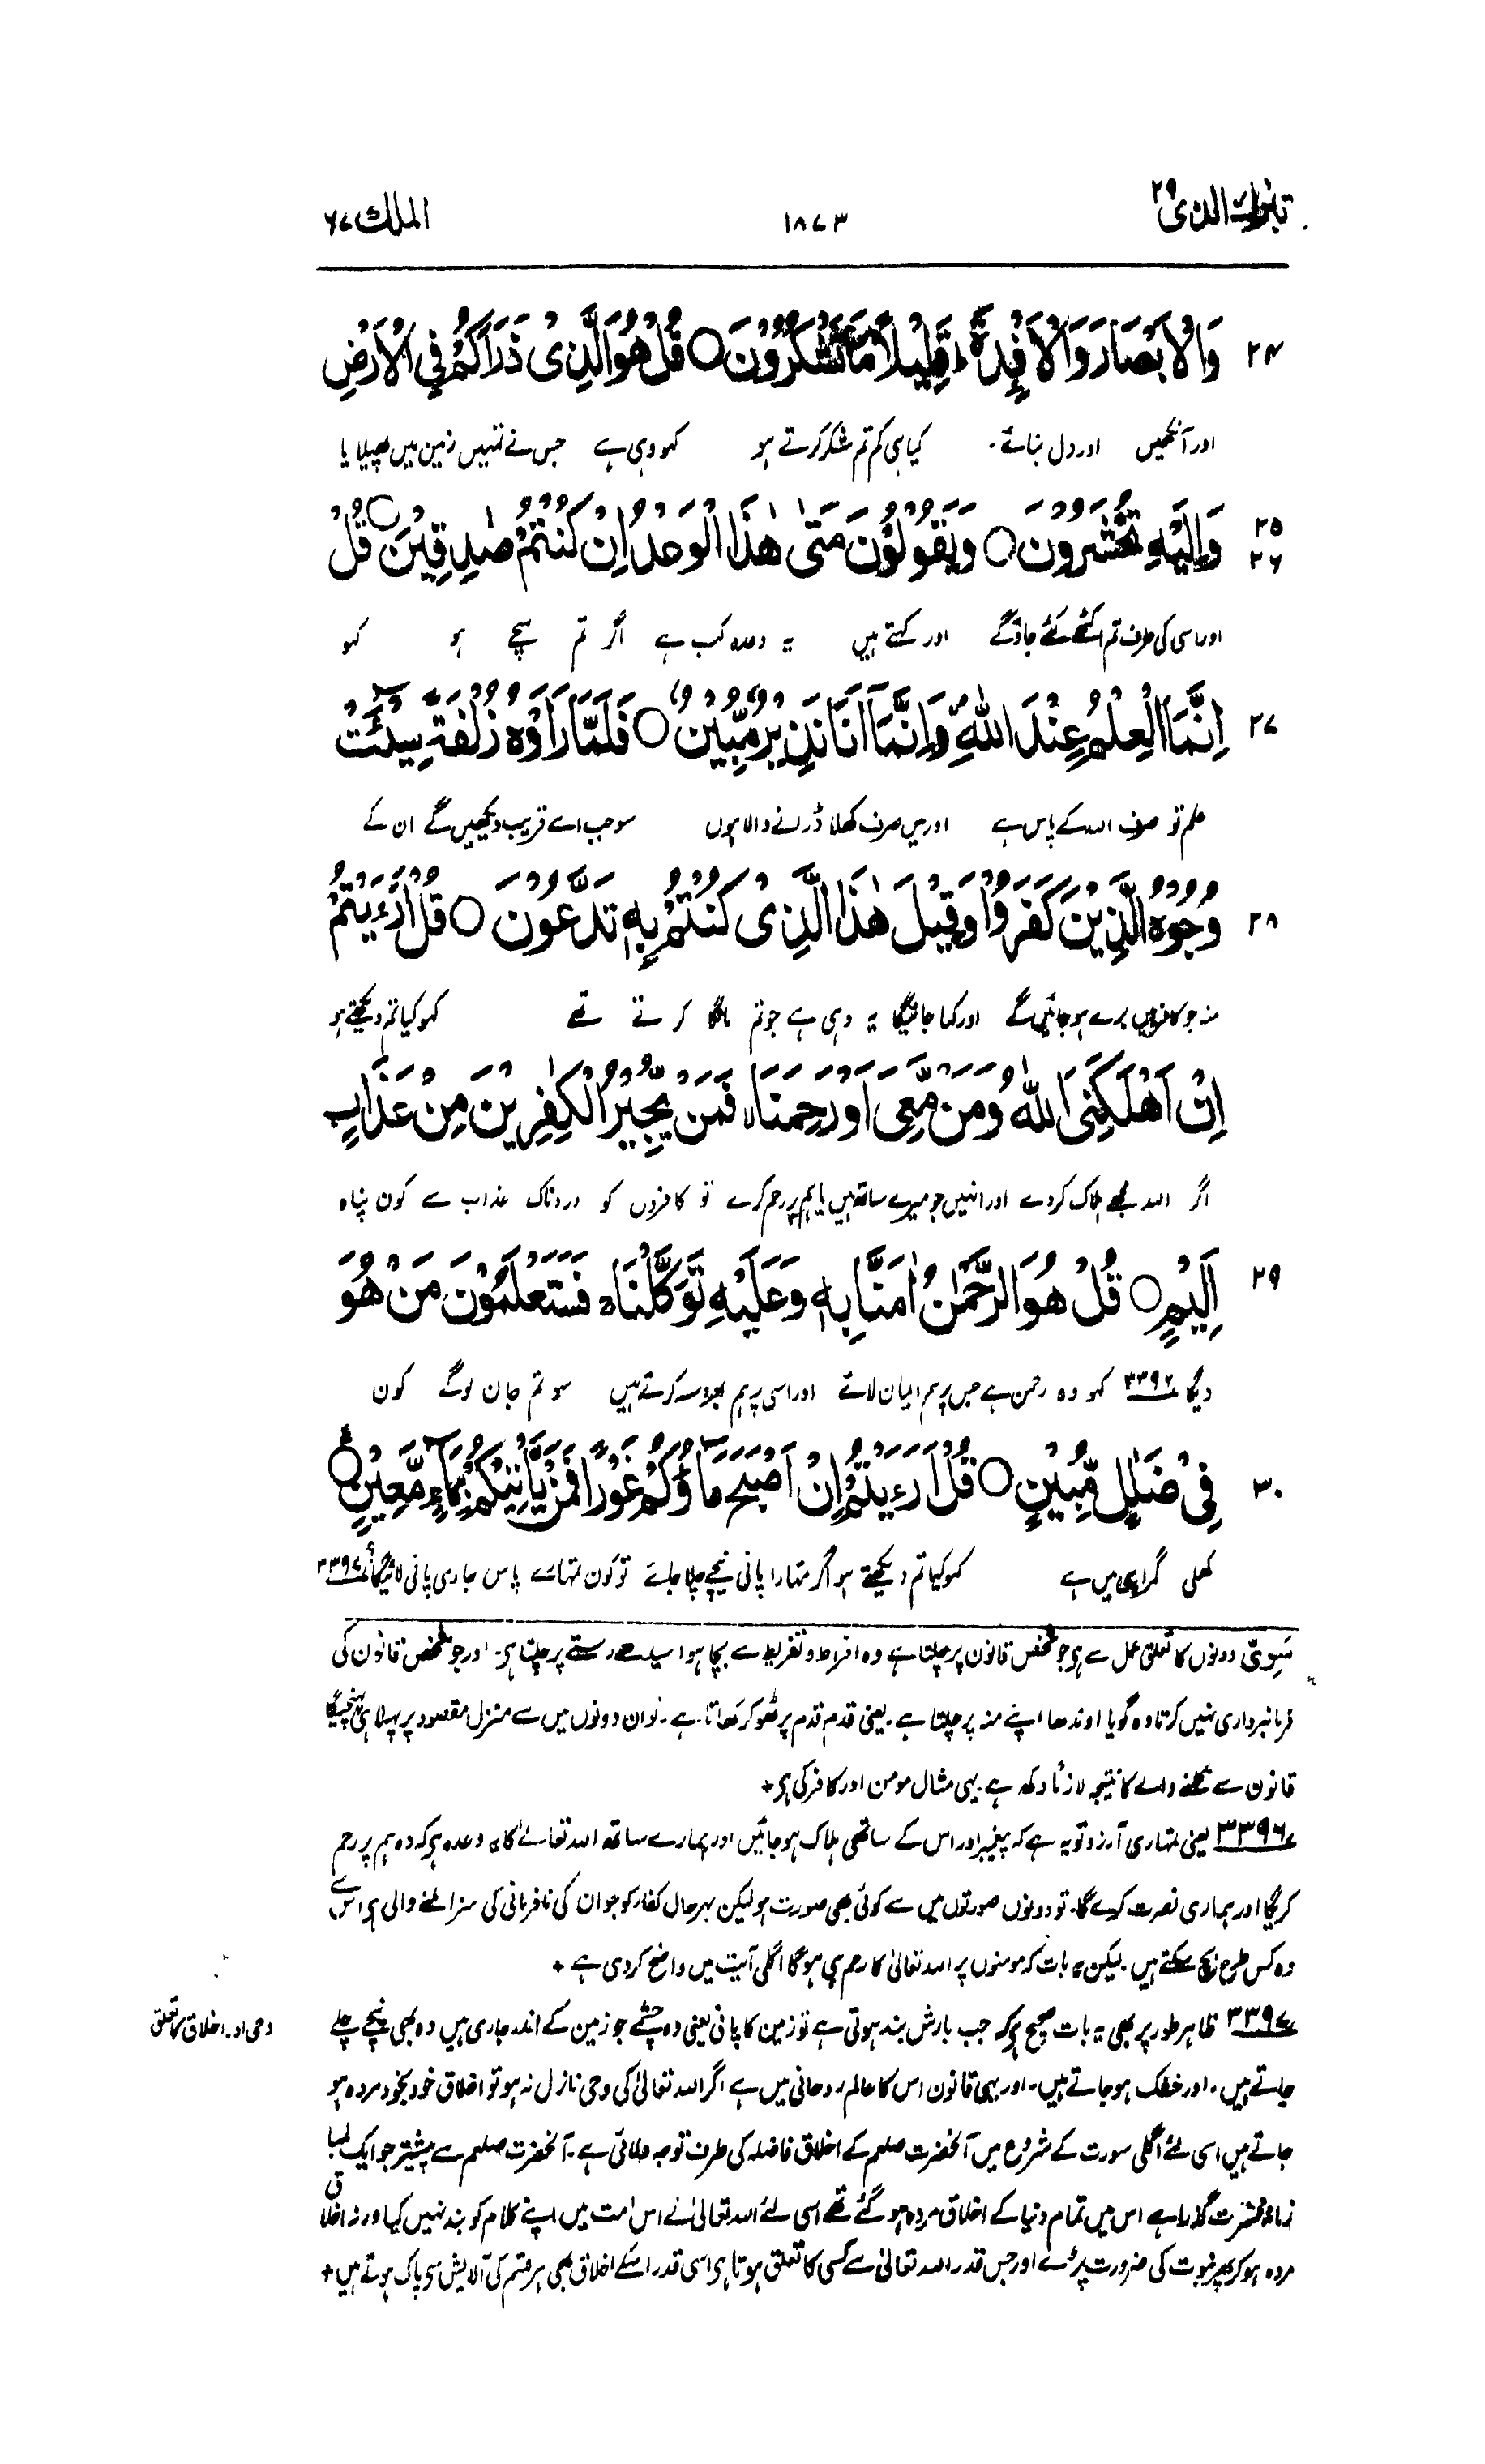 تبٰرك الذى ٢٩ ١٨٧٣ الملك ٦٧
٢٤ وَالْاَبْصَارَ وَالْاَفْـِٕدَةَ ؕ قَلِيْلًا مَّا تَشْكُرُوْنَ ○ قُلْ هُوَ الَّذِىْ ذَرَاَكُمْ فِى الْاَرْضِ
اور آنکھیں اور دل بنائے۔ کیا ہی کم تم شکر کرتے ہو کہو وہی ہے جس نے تمہیں زمین میں پھیلایا
٢٥ ٢٦ وَاِلَيْهِ تُحْشَرُوْنَ ○ وَيَقُوْلُوْنَ مَتٰى هٰذَا الْوَعْدُ اِنْ كُنْتُمْ صٰدِقِيْنَ ○ قُلْ
اور اسی کی طرف تم اکٹھے کئے جاؤگے اور کہتے ہیں یہ وعدہ کب ہے اگر تم سچے ہو کہو
٢٧ اِنَّمَا الْعِلْمُ عِنْدَ اللّٰهِ وَاِنَّمَآ اَنَا نَذِيْرٌ مُّبِيْنٌ ○ فَلَمَّا رَاَوْهُ زُلْفَةً سِيْٓـَٔتْ
علم تو صرف اللہ کے پاس ہے اور میں صرف کھلا ڈرانے والا ہوں سو جب اسے قریب دیکھیں گے ان کے
٢٨ وُجُوْهُ الَّذِيْنَ كَفَرُوْا وَقِيْلَ هٰذَا الَّذِىْ كُنْتُمْ بِهٖ تَدَّعُوْنَ ○ قُلْ اَرَءَيْتُمْ
منہ جو کافر ہیں برے ہو جائیں گے اور کہا جائیگا یہ وہی ہے جو تم مانگا کرتے تھے کہو کیا تم دیکھتے ہو
اِنْ اَهْلَكَنِىَ اللّٰهُ وَمَنْ مَّعِىَ اَوْ رَحِمَنَا ۙ فَمَنْ يُّجِيْرُ الْكٰفِرِيْنَ مِنْ عَذَابٍ
اگر اللہ مجھے ہلاک کردے اور انہیں جو میرے ساتھ ہیں یا ہم پر رحم کرے تو کافروں کو دردناک عذاب سے کون پناہ
٢٩ اَلِيْمٍ ○ قُلْ هُوَ الرَّحْمٰنُ اٰمَنَّا بِهٖ وَعَلَيْهِ تَوَكَّلْنَا ۚ فَسَتَعْلَمُوْنَ مَنْ هُوَ
دیگا ٣٣٩٦ کہو وہ رحمن ہے جس پر ہم ایمان لائے اور اسی پر ہم بھروسہ کرتے ہیں سو تم جان لوگے کون
٣٠ فِىْ ضَلٰلٍ مُّبِيْنٍ ○ قُلْ اَرَءَيْتُمْ اِنْ اَصْبَحَ مَآؤُكُمْ غَوْرًا فَمَنْ يَّاْتِيْكُمْ بِمَآءٍ مَّعِيْنٍ ○ ع
کھلی گمراہی میں ہے کہو کیا تم دیکھتے ہو اگر تمہارا پانی نیچے چلا جائے تو کون تمہارے پاس جاری پانی لائیگا ٣٣٩٧
سَوِیّ دونوں کا تعلق عمل سے ہی جو شخص قانون پر چلتا ہے وہ افراط و تفریط سے بچا ہوا سیدھے رستے پر چلتا ہی۔ اور جو شخص قانون کی
فرمانبرداری نہیں کرتا وہ گویا اوندھا اپنے منہ پر چلتا ہے۔ یعنی قدم قدم پر ٹھوکر کھاتا ہے۔ تو ان دونوں میں سے منزل مقصود پر پہلا ہی پہنچیگا
قانون سے نکلنے والے کا نتیجہ لازماً دکھ ہے یہی مثال مومن اور کافر کی ہی+
٣٣٩٦ یعنی تمہاری آرزو تو یہ ہے کہ پیغمبر اور اس کے ساتھی ہلاک ہو جائیں اور ہمارے ساتھ اللہ تعالےٰ کا یہ وعدہ ہی کہ وہ ہم پر رحم
کریگا اور ہماری نصرت کرے گا۔ تو دونوں صورتوں میں سے کوئی بھی صورت ہو لیکن بہرحال کفار کو جو ان کی نافرمانی کی سزا ملنے والی ہی اس سے
وہ کس طرح بچ سکتے ہیں۔ لیکن یہ بات کہ مومنوں پر اللہ تعالیٰ کا رحم ہی ہوگا اگلی آیت میں واضح کر دی ہے +
٣٣٩٧ ظاہر طور پر بھی یہ بات صحیح ہی کہ جب بارش بند ہوتی ہے تو زمین کا پانی یعنی وہ چشمے جو زمین کے اندر جاری ہیں وہ بھی نیچے چلے
وحی اور اخلاق کا تعلق
جاتے ہیں۔ اور خشک ہو جاتے ہیں۔ اور یہی قانون اس کا عالم روحانی میں ہے اگر اللہ تعالیٰ کی وحی نازل نہ ہو تو اخلاق خود بخود مردہ ہو
جاتے ہیں اسی لئے اگلی سورت کے شروع میں آنحضرت صلعم کے اخلاق فاضلہ کی طرف توجہ دلائی ہے۔ آنحضرت صلعم سے پیشتر جو ایک لمبا
زمانہ فترت گذرا ہے اس میں تمام دنیا کے اخلاق مردہ ہو گئے تھے اسی لئے اللہ تعالیٰ نے اس امت میں اپنے کلام کو بند نہیں کیا ورنہ اخلاق
مردہ ہو کر پھر نبوت کی ضرورت پڑے اور جس قدر اللہ تعالیٰ سے کسی کا تعلق ہوتا ہی اسی قدر اسکے اخلاق بھی ہر قسم کی آلایش سی پاک ہوتے ہیں+